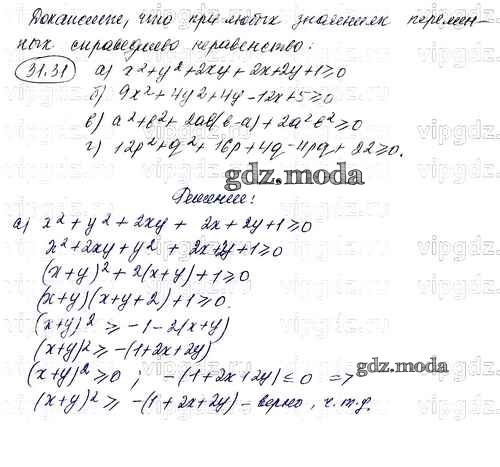 Докажите, что при любых значениях перемен-
ных справедливо неравенство:
31.31 а) x²+y²+2xy+2x+2y+1≥0
б) 9x²+4y²+4y-12x+5≥0
в) a²+b²+2ab(b-a)+2a²b²≥0
г) 12p²+q²+16p+4q-4pq+22≥0.
gdz.moda
Решение:
а) x²+y²+2xy+2x+2y+1≥0
x²+2xy+y²+2x+2y+1≥0
(x+y)²+2(x+y)+1≥0
(x+y)(x+y+2)+1≥0.
(x+y)²≥-1-2(x+y)
(x+y)²≥-(1+2x+2y)
gdz.moda
(x+y)²≥0; -(1+2x+2y)≤0 =>
(x+y)²≥-(1+2x+2y) - верно, ч.т.д.